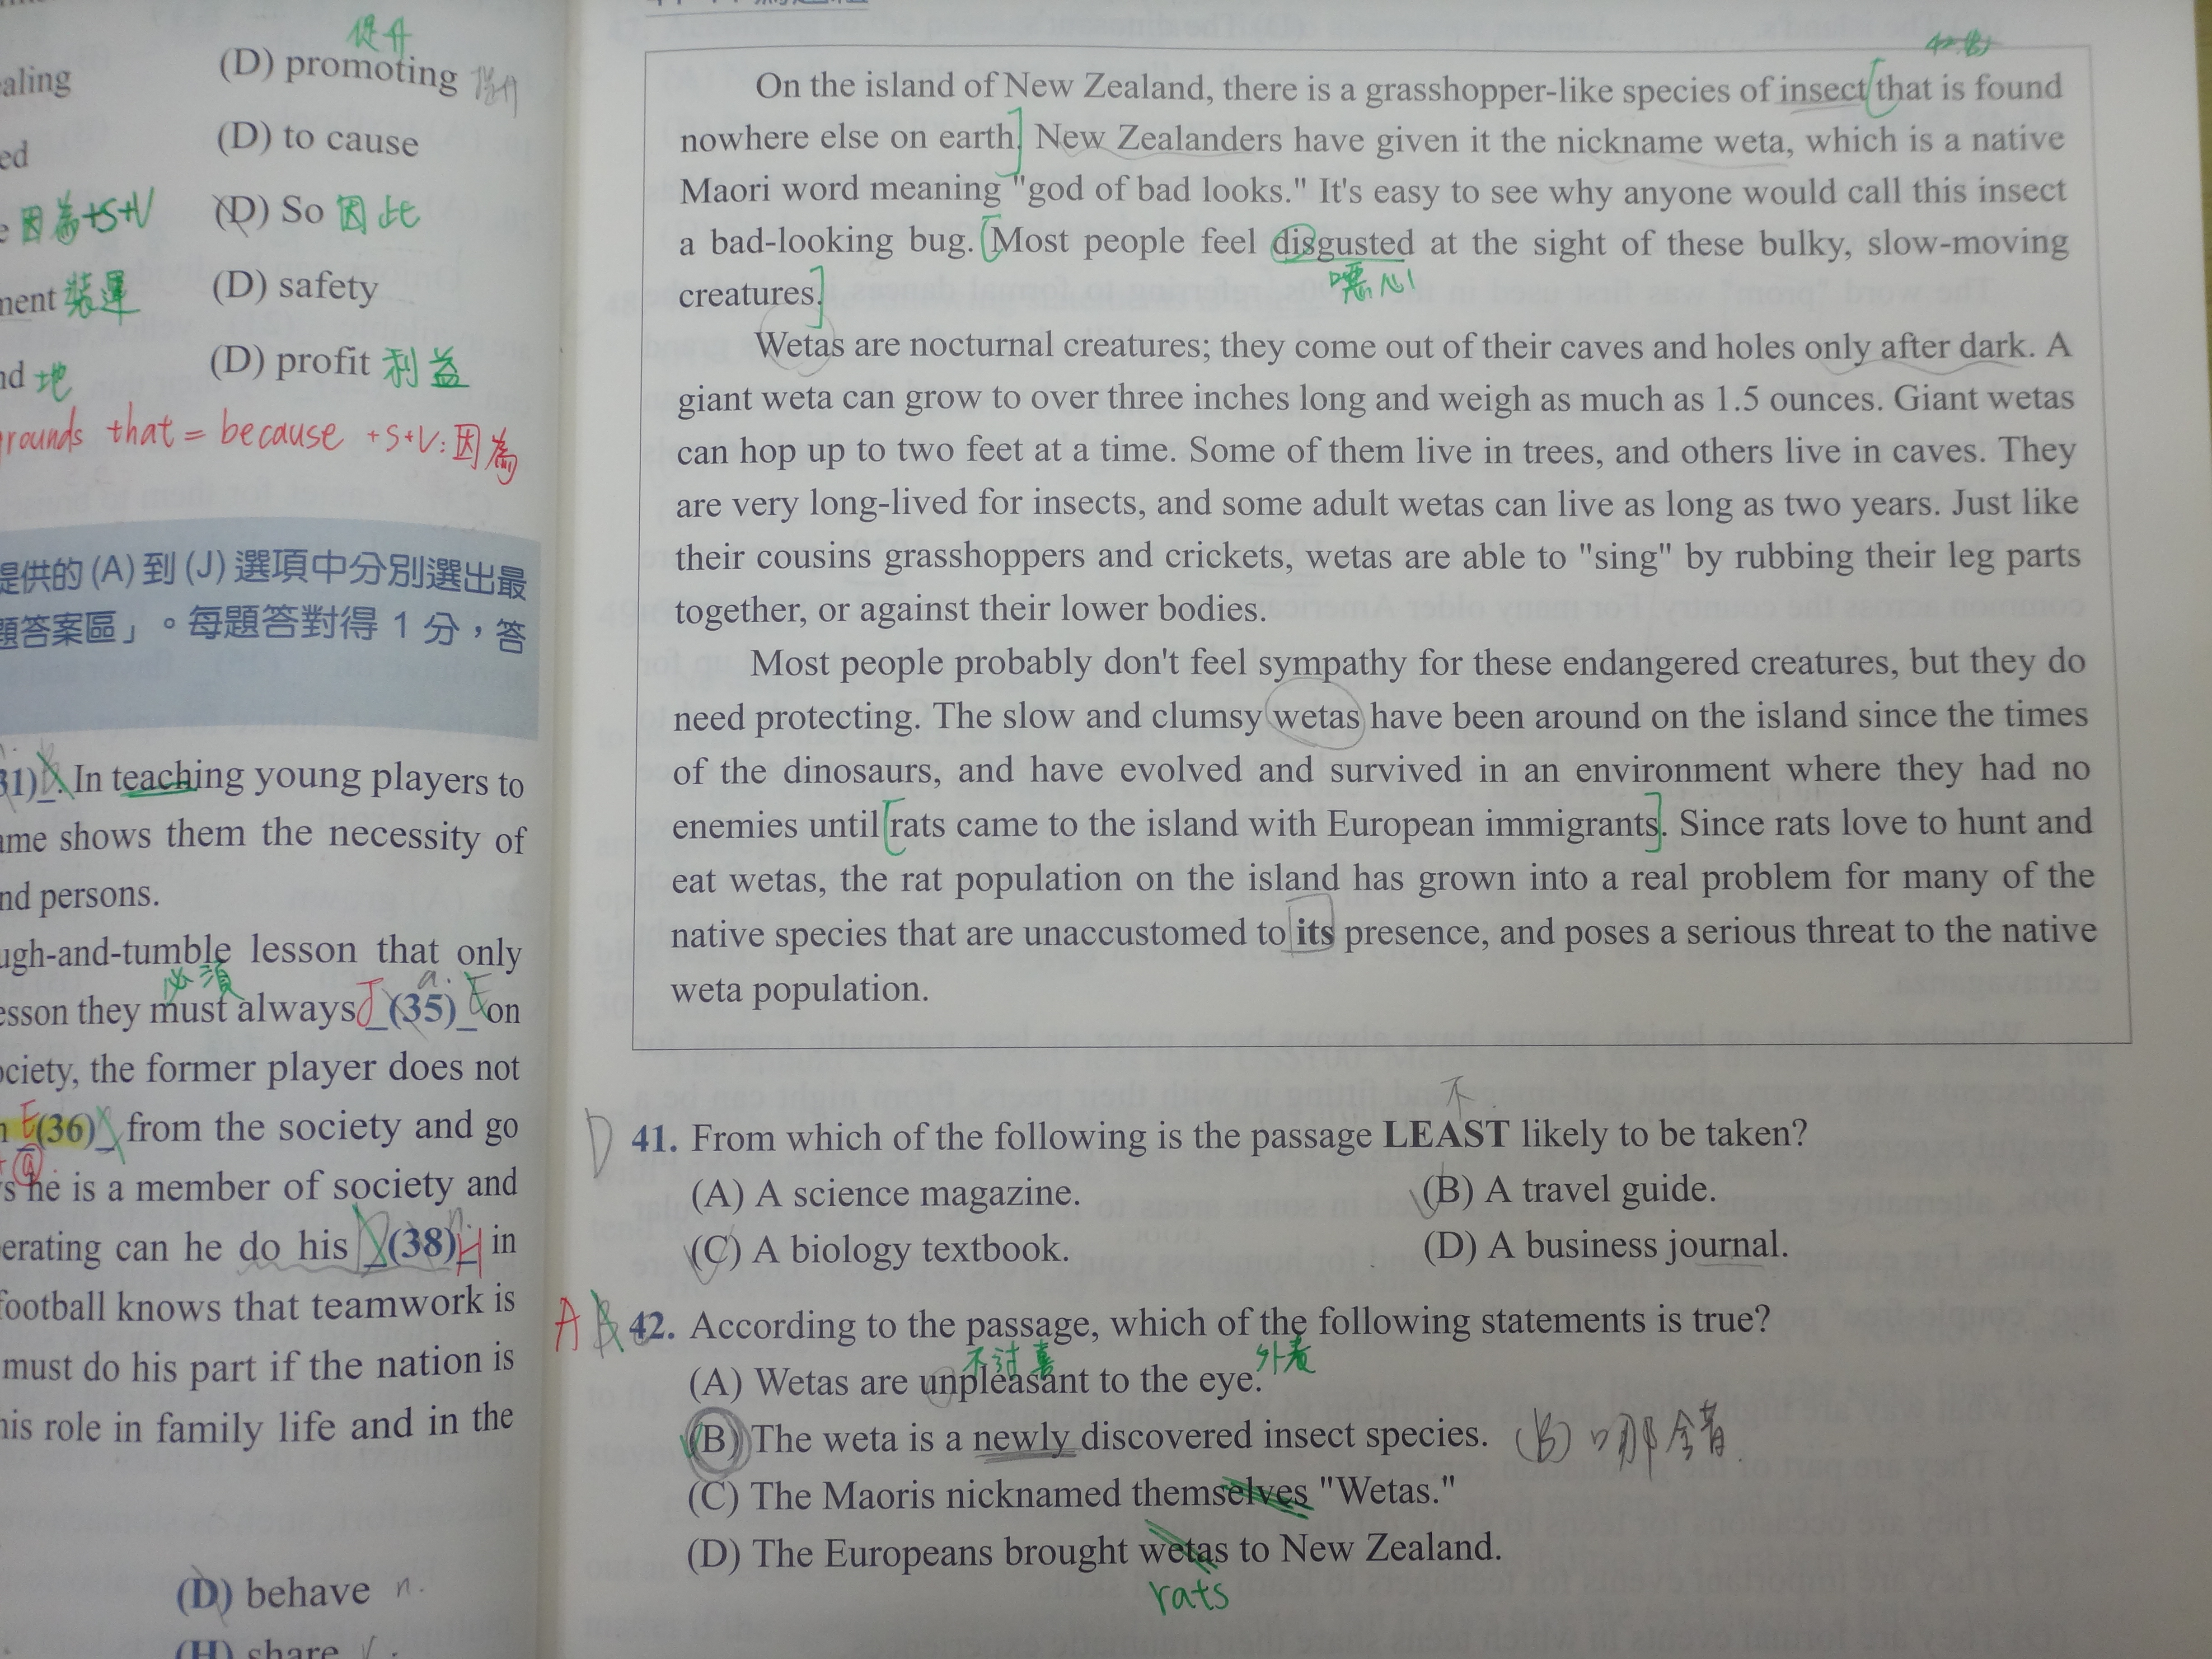 提升
(D) promoting
aling
(D) to cause
ed
e 因為+S+V (D) So 因此
ment 裝運 (D) safety
nd 地 (D) profit 利益
rounds that = because +S+V:因為
提供的 (A) 到 (J) 選項中分別選出最
題答案區」。每題答對得 1 分，答
31) . In teaching young players to
ame shows them the necessity of
nd persons.
ugh-and-tumble lesson that only
必須 a.
esson they must always J (35) E on
ociety, the former player does not
E (36) from the society and go
s he is a member of society and
n.
erating can he do his (38) H in
football knows that teamwork is
must do his part if the nation is
his role in family life and in the
(D) behave n.
(H) share v.
On the island of New Zealand, there is a grasshopper-like species of insect [that is found
nowhere else on earth]. New Zealanders have given it the nickname weta, which is a native
Maori word meaning "god of bad looks." It's easy to see why anyone would call this insect
a bad-looking bug. [Most people feel disgusted at the sight of these bulky, slow-moving
噁心
creatures.]
Wetas are nocturnal creatures; they come out of their caves and holes only after dark. A
giant weta can grow to over three inches long and weigh as much as 1.5 ounces. Giant wetas
can hop up to two feet at a time. Some of them live in trees, and others live in caves. They
are very long-lived for insects, and some adult wetas can live as long as two years. Just like
their cousins grasshoppers and crickets, wetas are able to "sing" by rubbing their leg parts
together, or against their lower bodies.
Most people probably don't feel sympathy for these endangered creatures, but they do
need protecting. The slow and clumsy wetas have been around on the island since the times
of the dinosaurs, and have evolved and survived in an environment where they had no
enemies until [rats came to the island with European immigrants]. Since rats love to hunt and
eat wetas, the rat population on the island has grown into a real problem for many of the
native species that are unaccustomed to its presence, and poses a serious threat to the native
weta population.
不
D 41. From which of the following is the passage LEAST likely to be taken?
(A) A science magazine. (B) A travel guide.
(C) A biology textbook. (D) A business journal.
A 42. According to the passage, which of the following statements is true?
不討喜 外表
(A) Wetas are unpleasant to the eye.
(B) The weta is a newly discovered insect species. (B) 哪會
(C) The Maoris nicknamed themselves "Wetas."
(D) The Europeans brought wetas to New Zealand.
rats